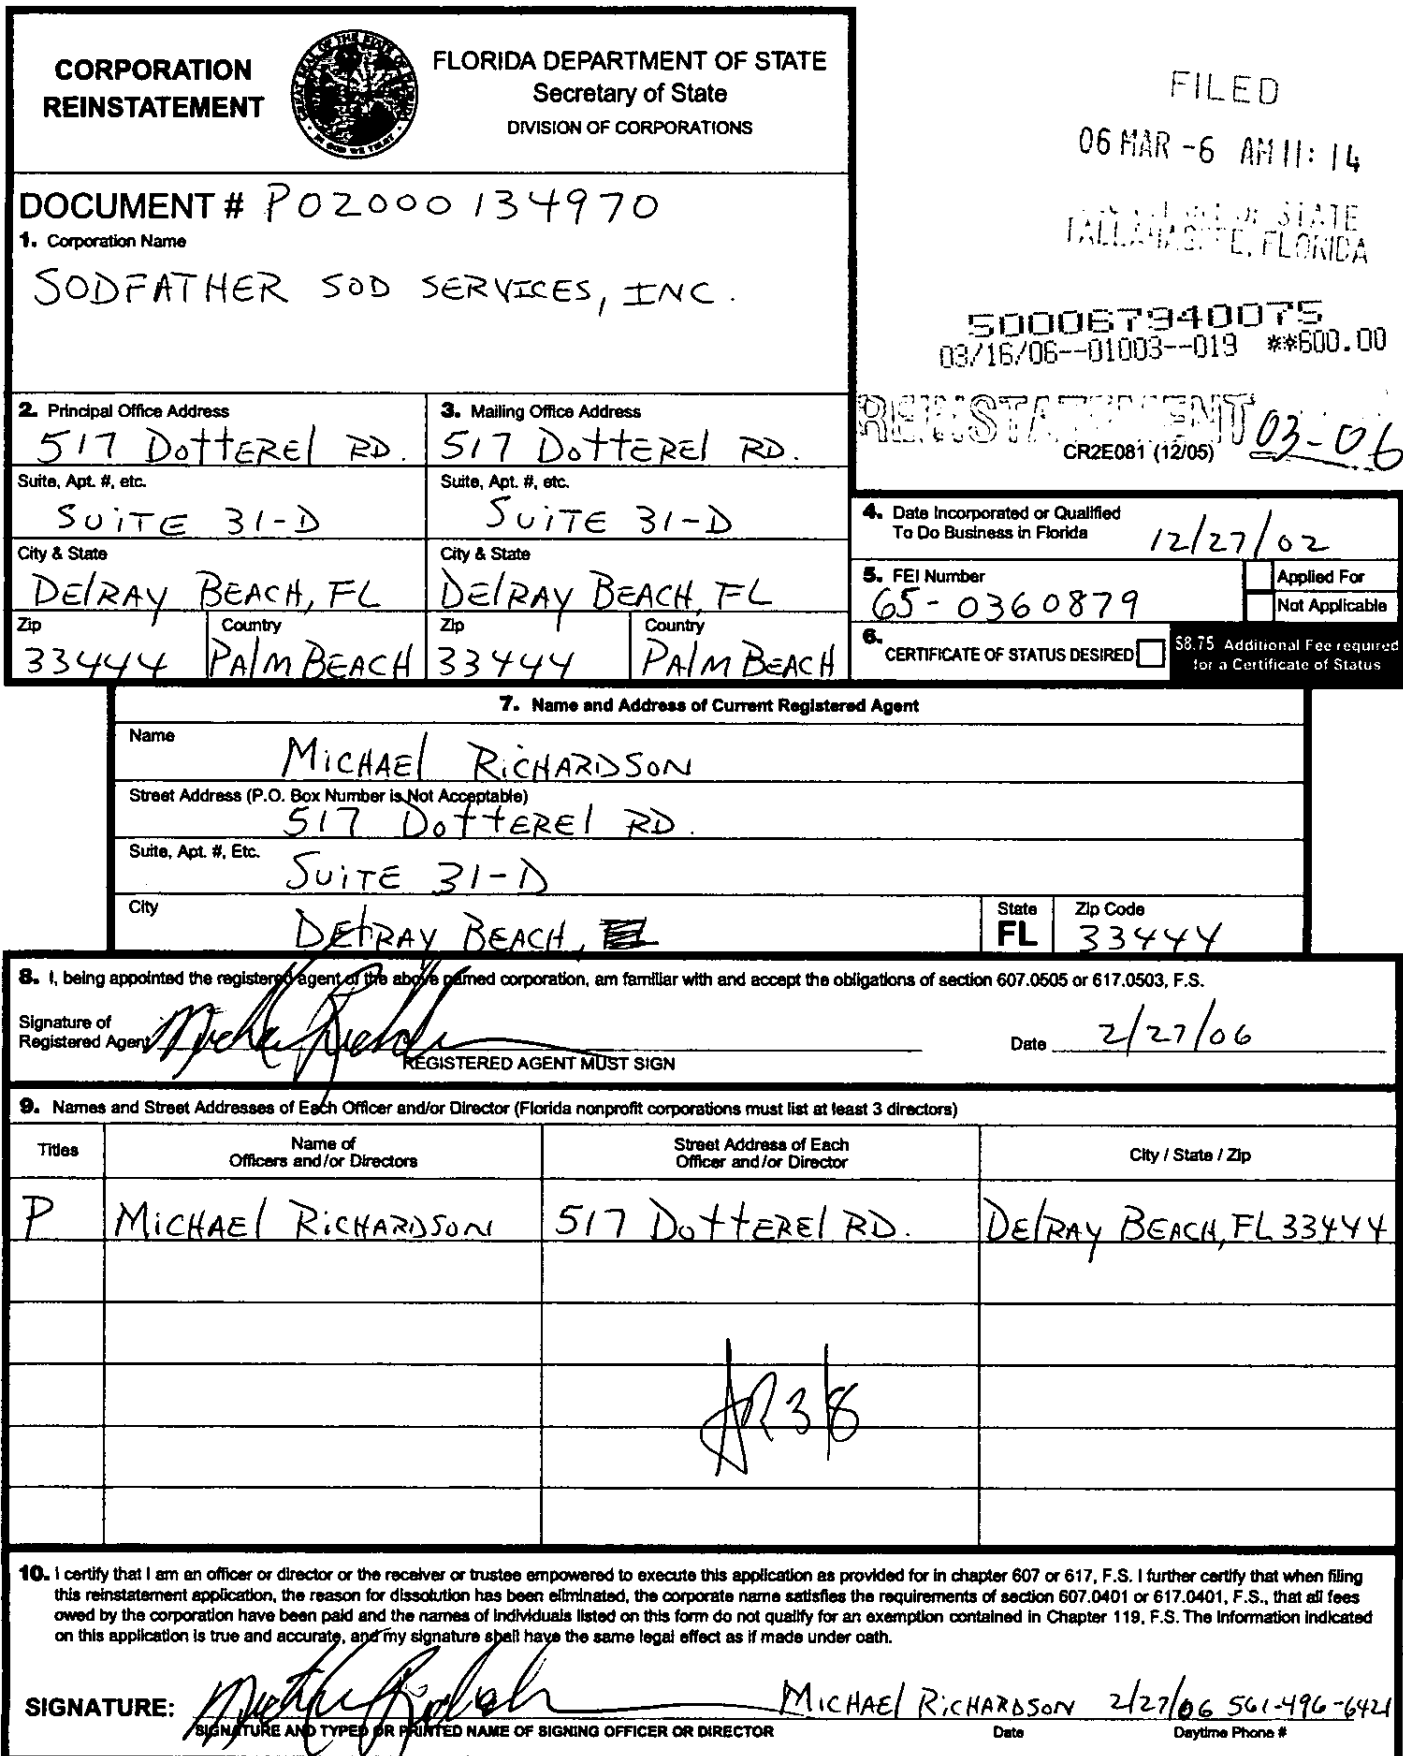 CORPORATION
REINSTATEMENT
GREAT SEAL OF THE STATE OF FLORIDA
IN GOD WE TRUST
FLORIDA DEPARTMENT OF STATE
Secretary of State
DIVISION OF CORPORATIONS
FILED
06 MAR -6 AM 11: 14
OF STATE
TALLAHASSEE, FLORIDA
DOCUMENT # P02000134970
1. Corporation Name
SODFATHER SOD SERVICES, INC.
500067940075
03/16/06--01003--019 **600.00
REINSTATEMENT 03-06
CR2E081 (12/05)
2. Principal Office Address
517 DottEREl RD.
Suite, Apt. #, etc.
SUiTE 31-D
City & State
DElRAY BEACH, FL
Zip
33444
Country
PAlM BEACH
3. Mailing Office Address
517 DottEREl RD.
Suite, Apt. #, etc.
SUiTE 31-D
City & State
DElRAY BEACH, FL
Zip
33444
Country
PAlM BEACH
4. Date Incorporated or Qualified
To Do Business in Florida 12/27/02
5. FEI Number
65-0360879
Applied For
Not Applicable
6. CERTIFICATE OF STATUS DESIRED
$8.75 Additional Fee required
for a Certificate of Status
7. Name and Address of Current Registered Agent
Name
MiCHAEl RiCHARDSON
Street Address (P.O. Box Number is Not Acceptable)
517 DottEREl RD.
Suite, Apt. #, Etc.
SUiTE 31-D
City
DElRAY BEACH,
State
FL
Zip Code
33444
8. I, being appointed the registered agent of the above named corporation, am familiar with and accept the obligations of section 607.0505 or 617.0503, F.S.
Signature of
Registered Agent
REGISTERED AGENT MUST SIGN
Date 2/27/06
9. Names and Street Addresses of Each Officer and/or Director (Florida nonprofit corporations must list at least 3 directors)
Titles
Name of
Officers and/or Directors
Street Address of Each
Officer and/or Director
City / State / Zip
P MiCHAEl RiCHARDSON 517 DottEREl RD. DElRAY BEACH, FL 33444
AR 3/8
10. I certify that I am an officer or director or the receiver or trustee empowered to execute this application as provided for in chapter 607 or 617, F.S. I further certify that when filing
this reinstatement application, the reason for dissolution has been eliminated, the corporate name satisfies the requirements of section 607.0401 or 617.0401, F.S., that all fees
owed by the corporation have been paid and the names of individuals listed on this form do not qualify for an exemption contained in Chapter 119, F.S. The information indicated
on this application is true and accurate, and my signature shall have the same legal effect as if made under oath.
SIGNATURE: MiCHAEl RiCHARDSON 2/27/06 561-496-6421
SIGNATURE AND TYPED OR PRINTED NAME OF SIGNING OFFICER OR DIRECTOR
Date
Daytime Phone #